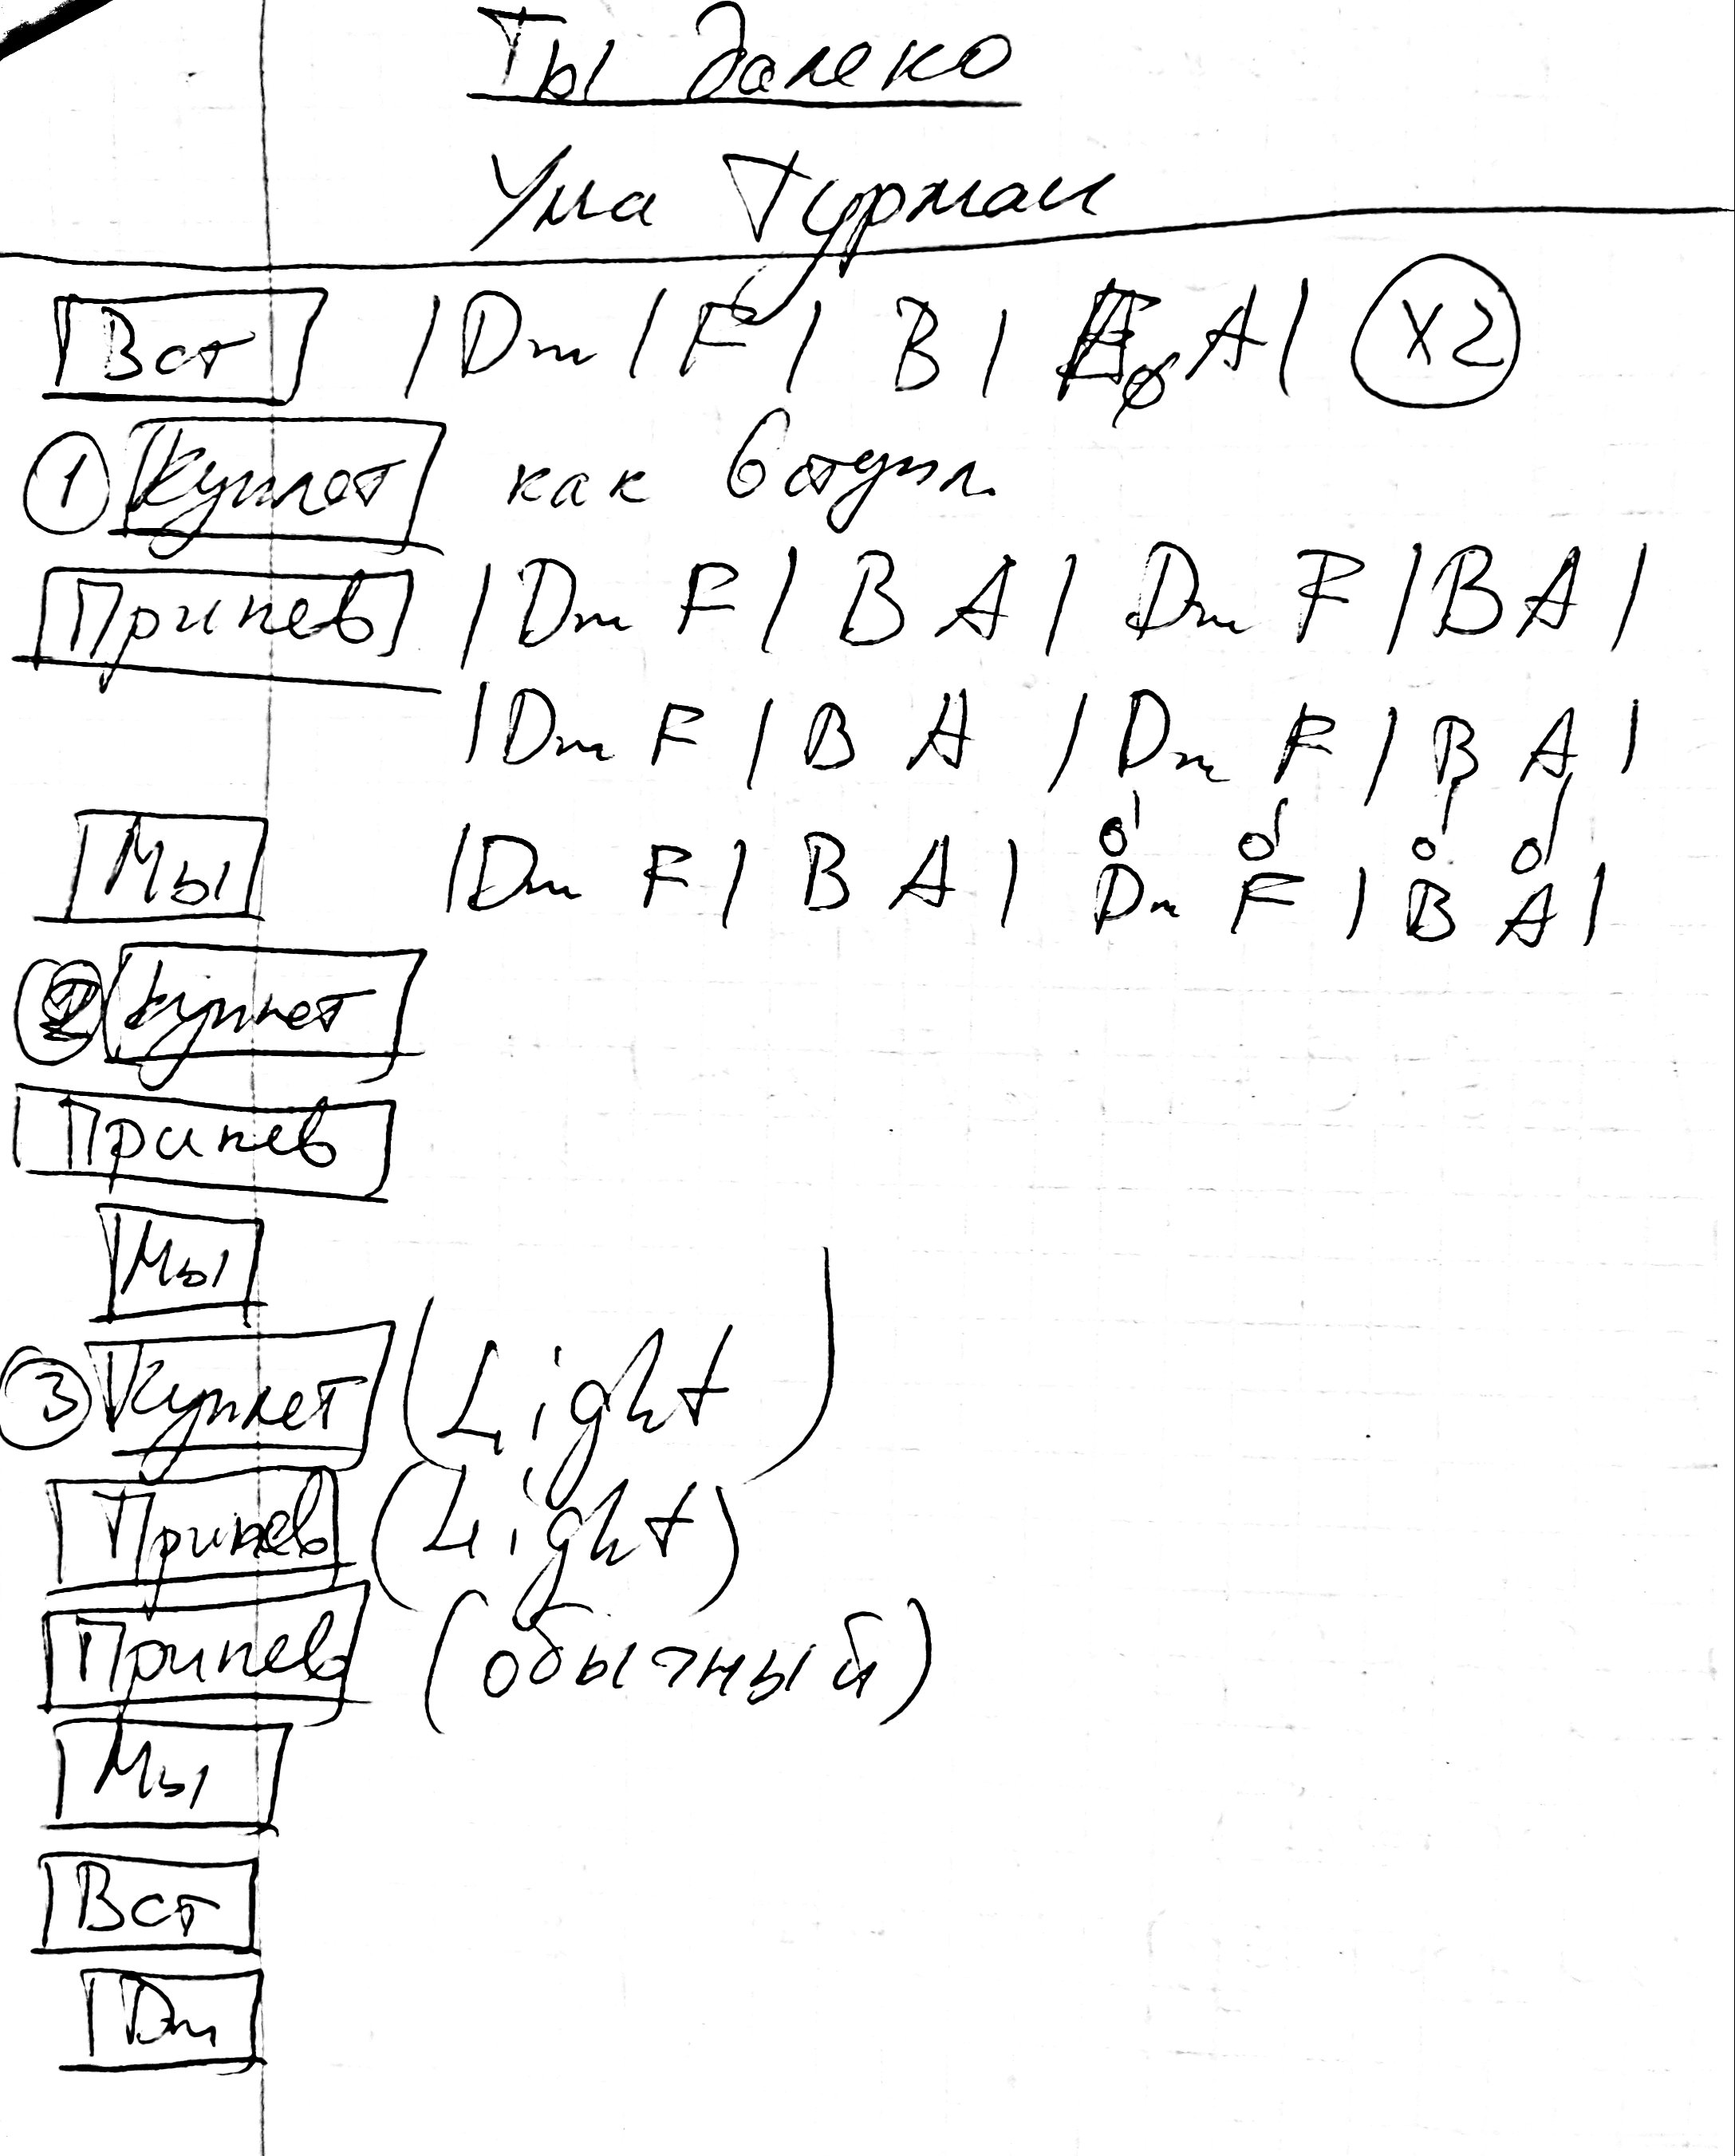 Ты далеко
Ума Турман
Вст |Dm | F | B | A | x2
1 Куплет как вступл.
Припев | Dm F | B A | Dm F | B A |
| Dm F | B A | Dm F | B A |
Мы | Dm F | B A | Dm F | B A |
2 Куплет
Припев
Мы
3 Куплет (Light)
Припев (Light)
Припев (обычный)
Мы
Вст
Dm